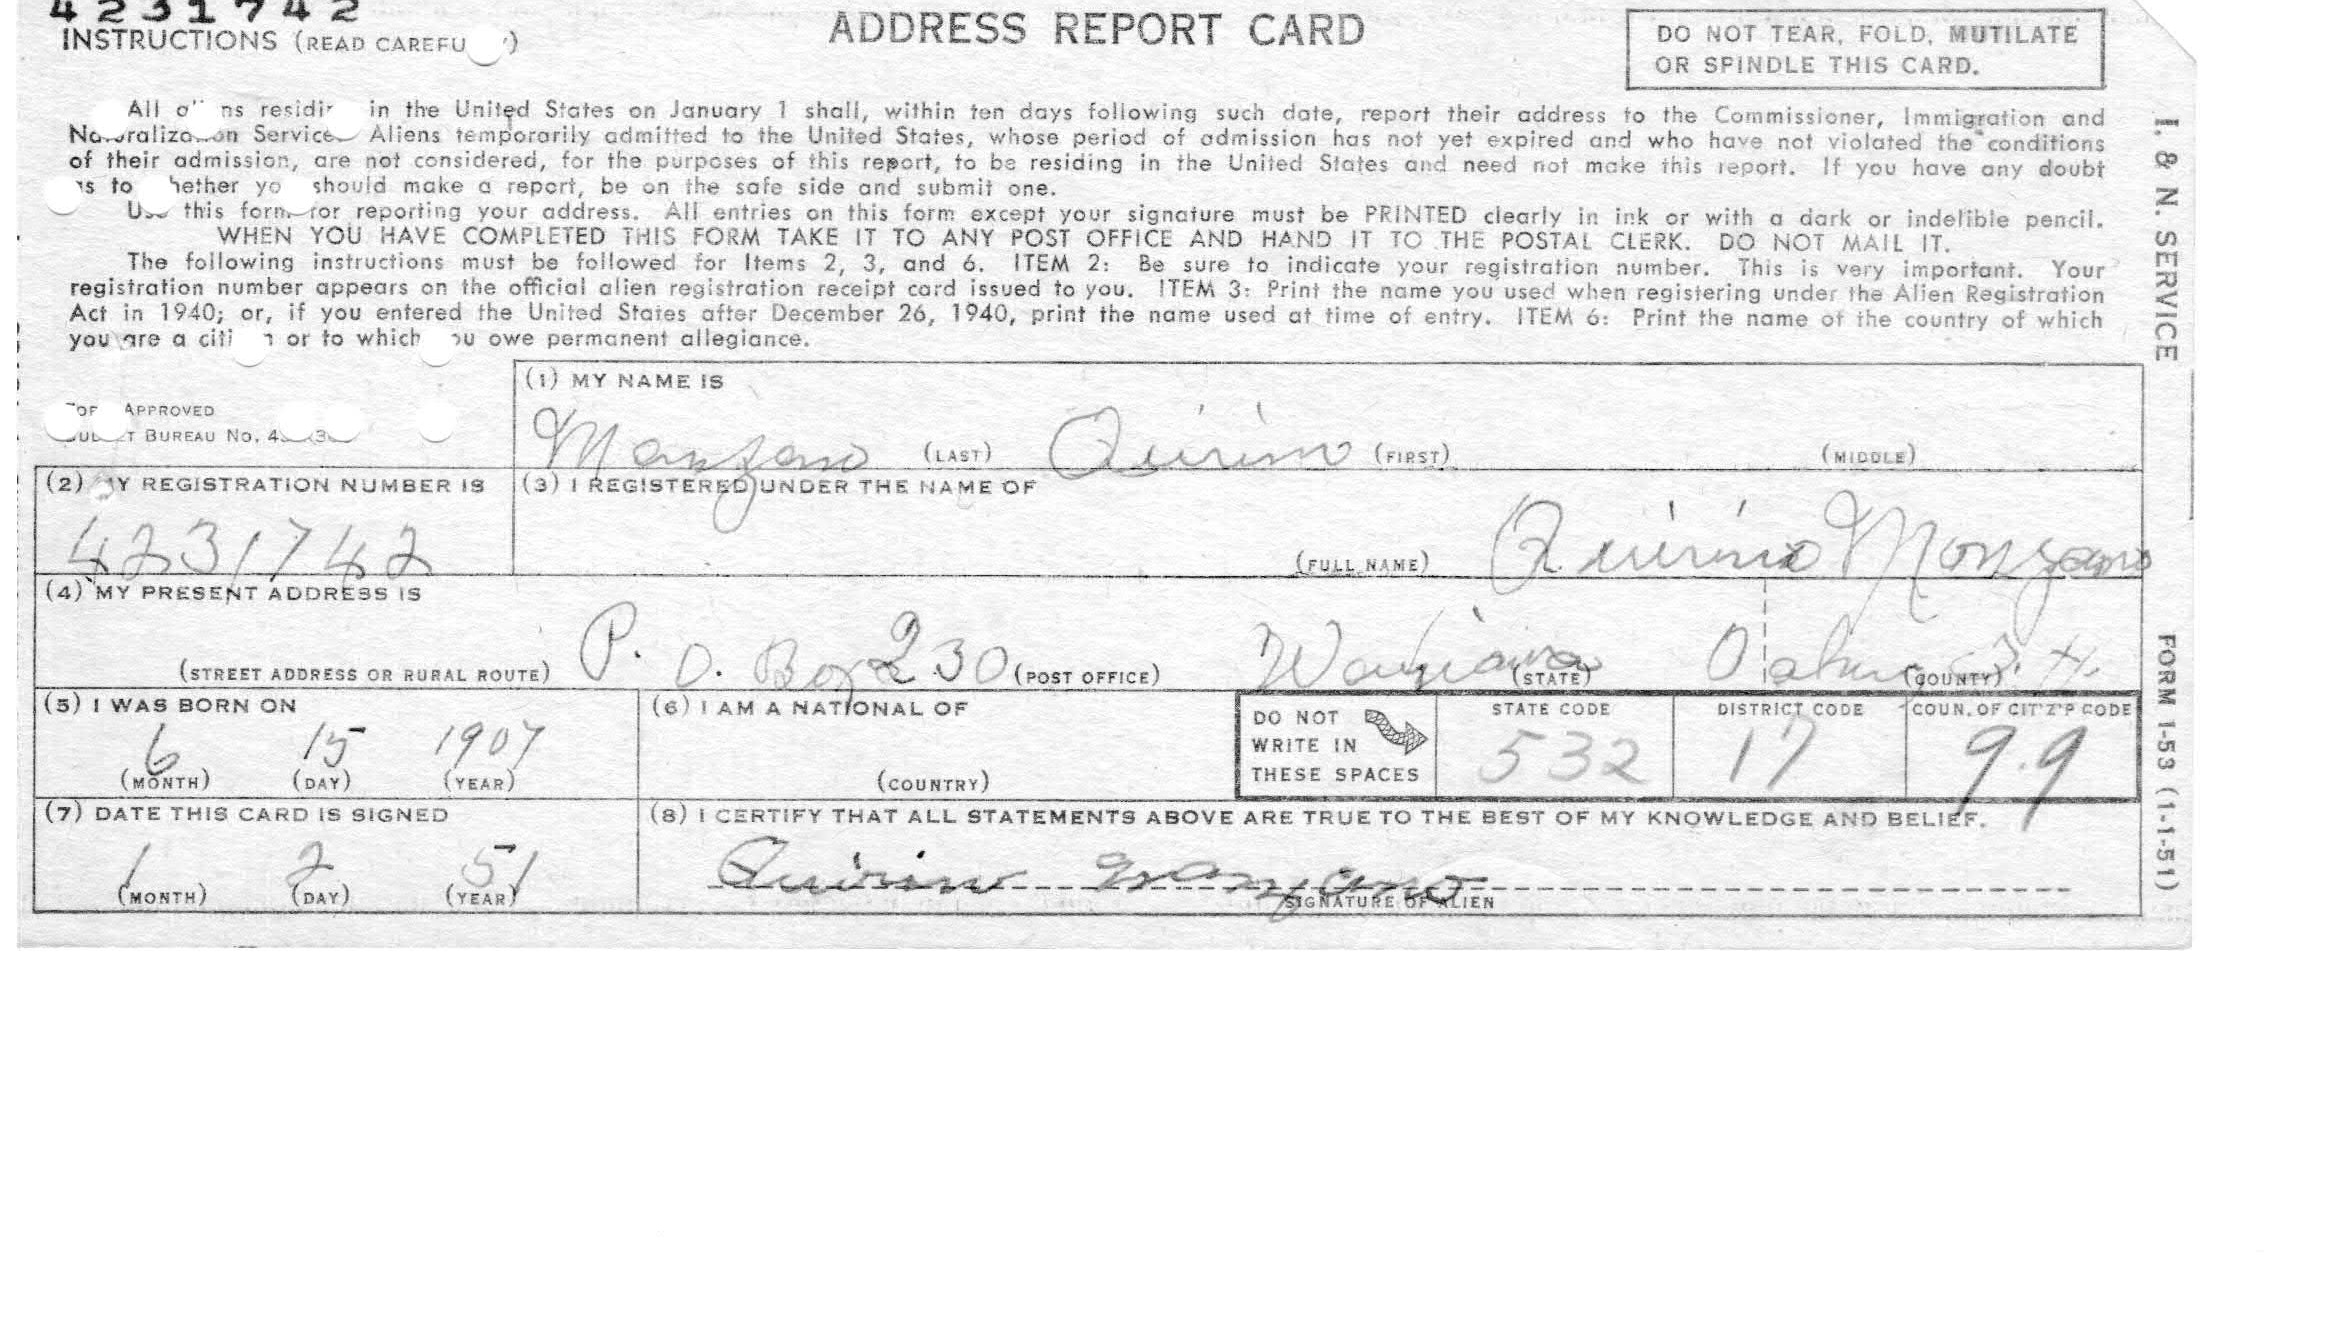 4231742
INSTRUCTIONS (READ CAREFU
ADDRESS REPORT CARD
DO NOT TEAR, FOLD, MUTILATE
OR SPINDLE THIS CARD.
All residin in the United States on January 1 shall, within ten days following such date, report their address to the Commissioner, Immigration and
Naturalization Service. Aliens temporarily admitted to the United States, whose period of admission has not yet expired and who have not violated the conditions
of their admission, are not considered, for the purposes of this report, to be residing in the United States and need not make this report. If you have any doubt
as to whether you should make a report, be on the safe side and submit one.
Use this form for reporting your address. All entries on this form except your signature must be PRINTED clearly in ink or with a dark or indelible pencil.
WHEN YOU HAVE COMPLETED THIS FORM TAKE IT TO ANY POST OFFICE AND HAND IT TO THE POSTAL CLERK. DO NOT MAIL IT.
The following instructions must be followed for Items 2, 3, and 6. ITEM 2: Be sure to indicate your registration number. This is very important. Your
registration number appears on the official alien registration receipt card issued to you. ITEM 3: Print the name you used when registering under the Alien Registration
Act in 1940; or, if you entered the United States after December 26, 1940, print the name used at time of entry. ITEM 6: Print the name of the country of which
you are a citi or to which you owe permanent allegiance.
I. & N. SERVICE
FORM I-53 (1-1-51)
APPROVED
BUREAU No.
(1) MY NAME IS
Manzano (LAST) Quirino (FIRST) (MIDDLE)
(2) MY REGISTRATION NUMBER IS
4231742
(3) I REGISTERED UNDER THE NAME OF
(FULL NAME) Quirino Manzano
(4) MY PRESENT ADDRESS IS
(STREET ADDRESS OR RURAL ROUTE) P. O. Box 230 (POST OFFICE) Wahiawa (STATE) Oahu (COUNTY) T. H.
(5) I WAS BORN ON
6 15 1907
(MONTH) (DAY) (YEAR)
(6) I AM A NATIONAL OF
(COUNTRY)
DO NOT
WRITE IN
THESE SPACES
STATE CODE
532
DISTRICT CODE
17
COUN. OF CIT'Z'P CODE
99
(7) DATE THIS CARD IS SIGNED
1 2 51
(MONTH) (DAY) (YEAR)
(8) I CERTIFY THAT ALL STATEMENTS ABOVE ARE TRUE TO THE BEST OF MY KNOWLEDGE AND BELIEF.
Quirino Manzano
SIGNATURE OF ALIEN